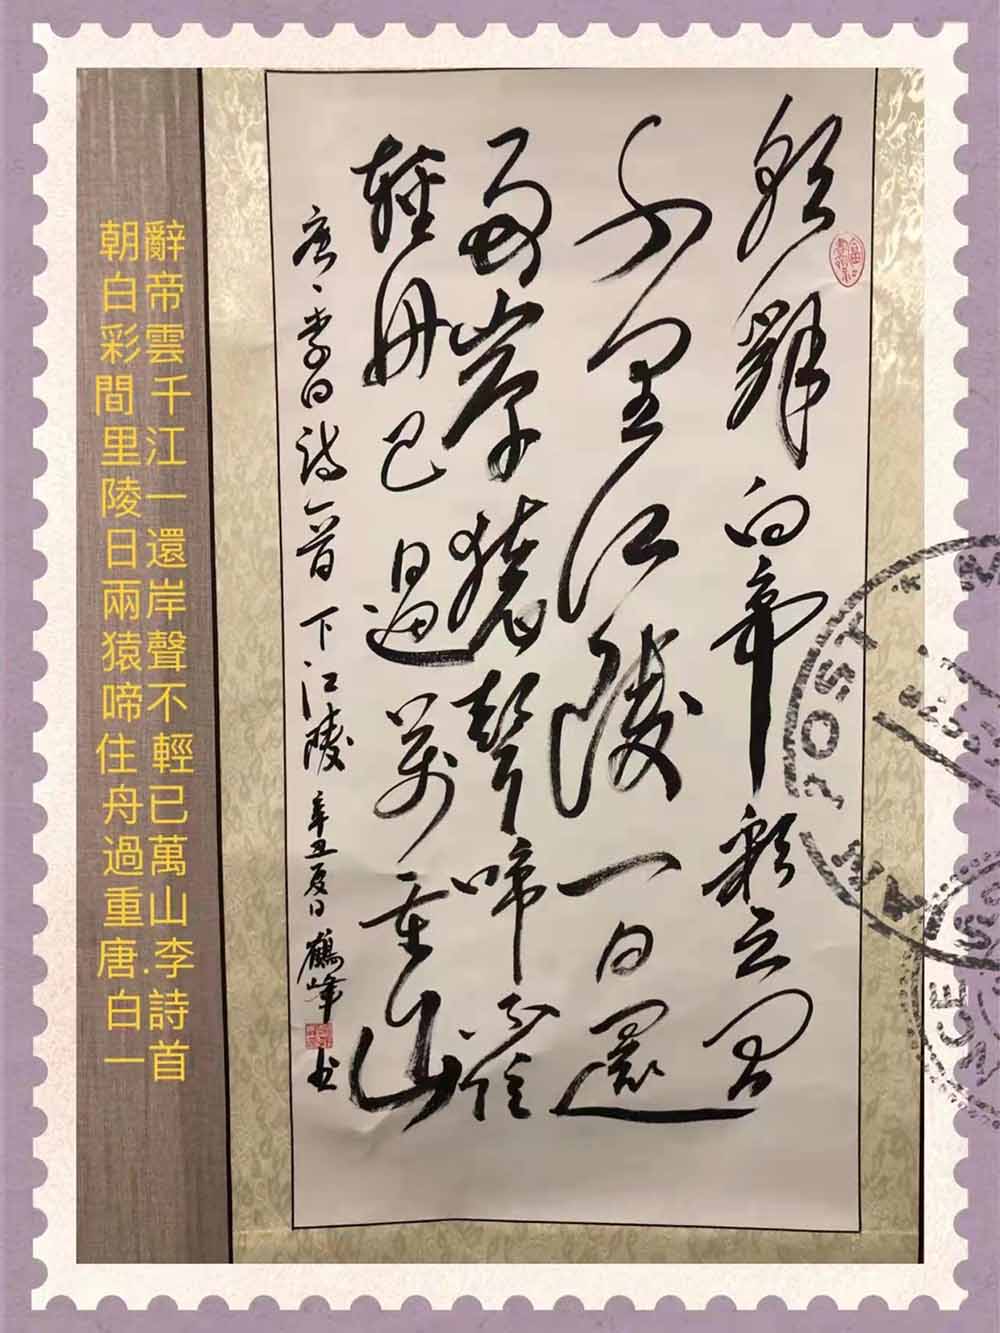 朝辭白帝彩云間
千里江陵一日還
兩岸猿聲啼不住
輕舟已過萬重山
唐、李白詩一首 下江陵 辛丑夏日 鶴峰 书
朝辭
白帝
彩雲
間千
里江
陵一
日還
兩岸
猿聲
啼不
住輕
舟已
過萬
重山
唐.李
白詩
一首
POST